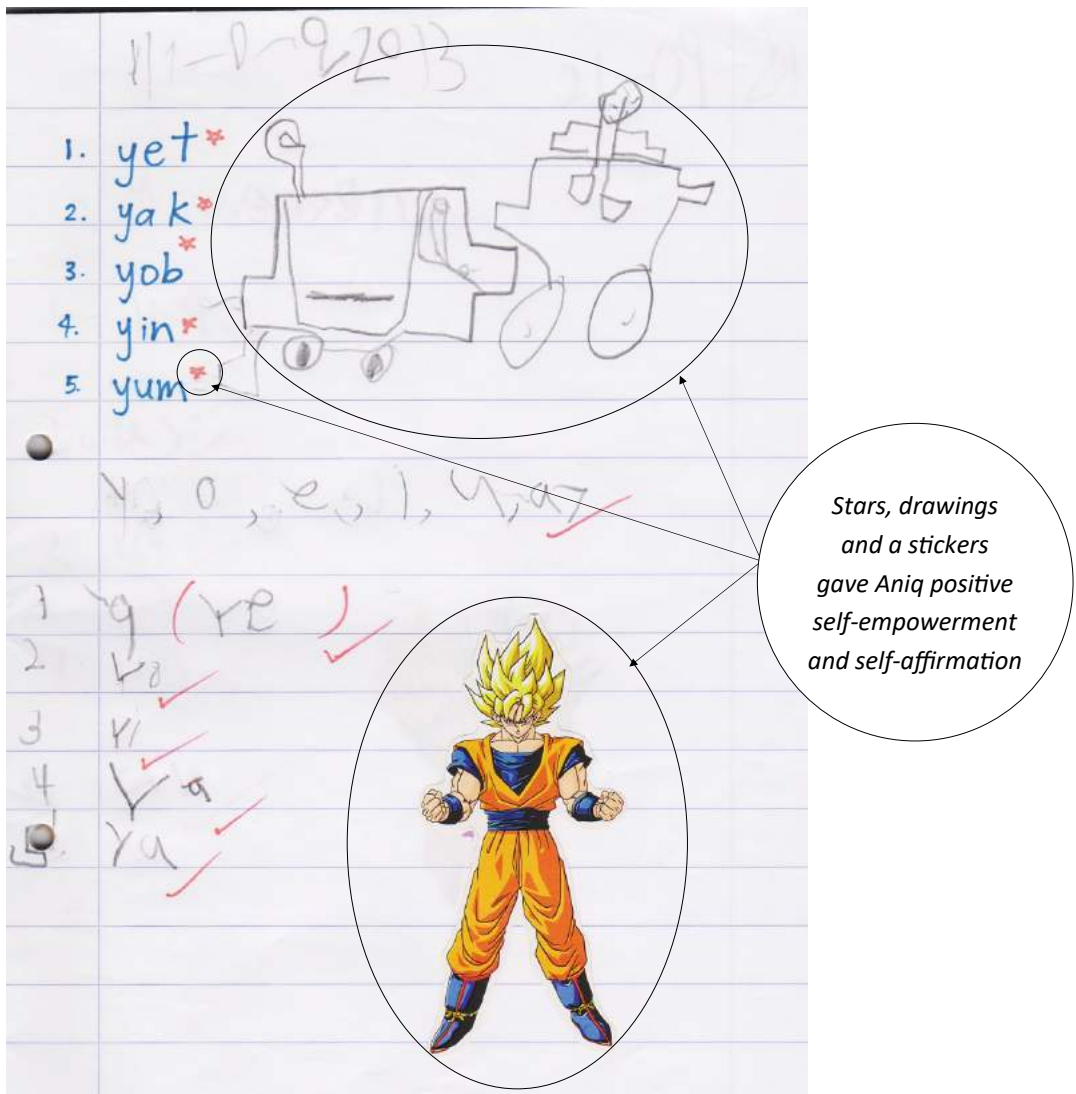 1. yet
2. yak
3. yob
4. yin
5. yum
y, o, e, i, u, a
1 (ye)
2
3 yi
4
5 ya
Stars, drawings
and a stickers
gave Aniq positive
self-empowerment
and self-affirmation